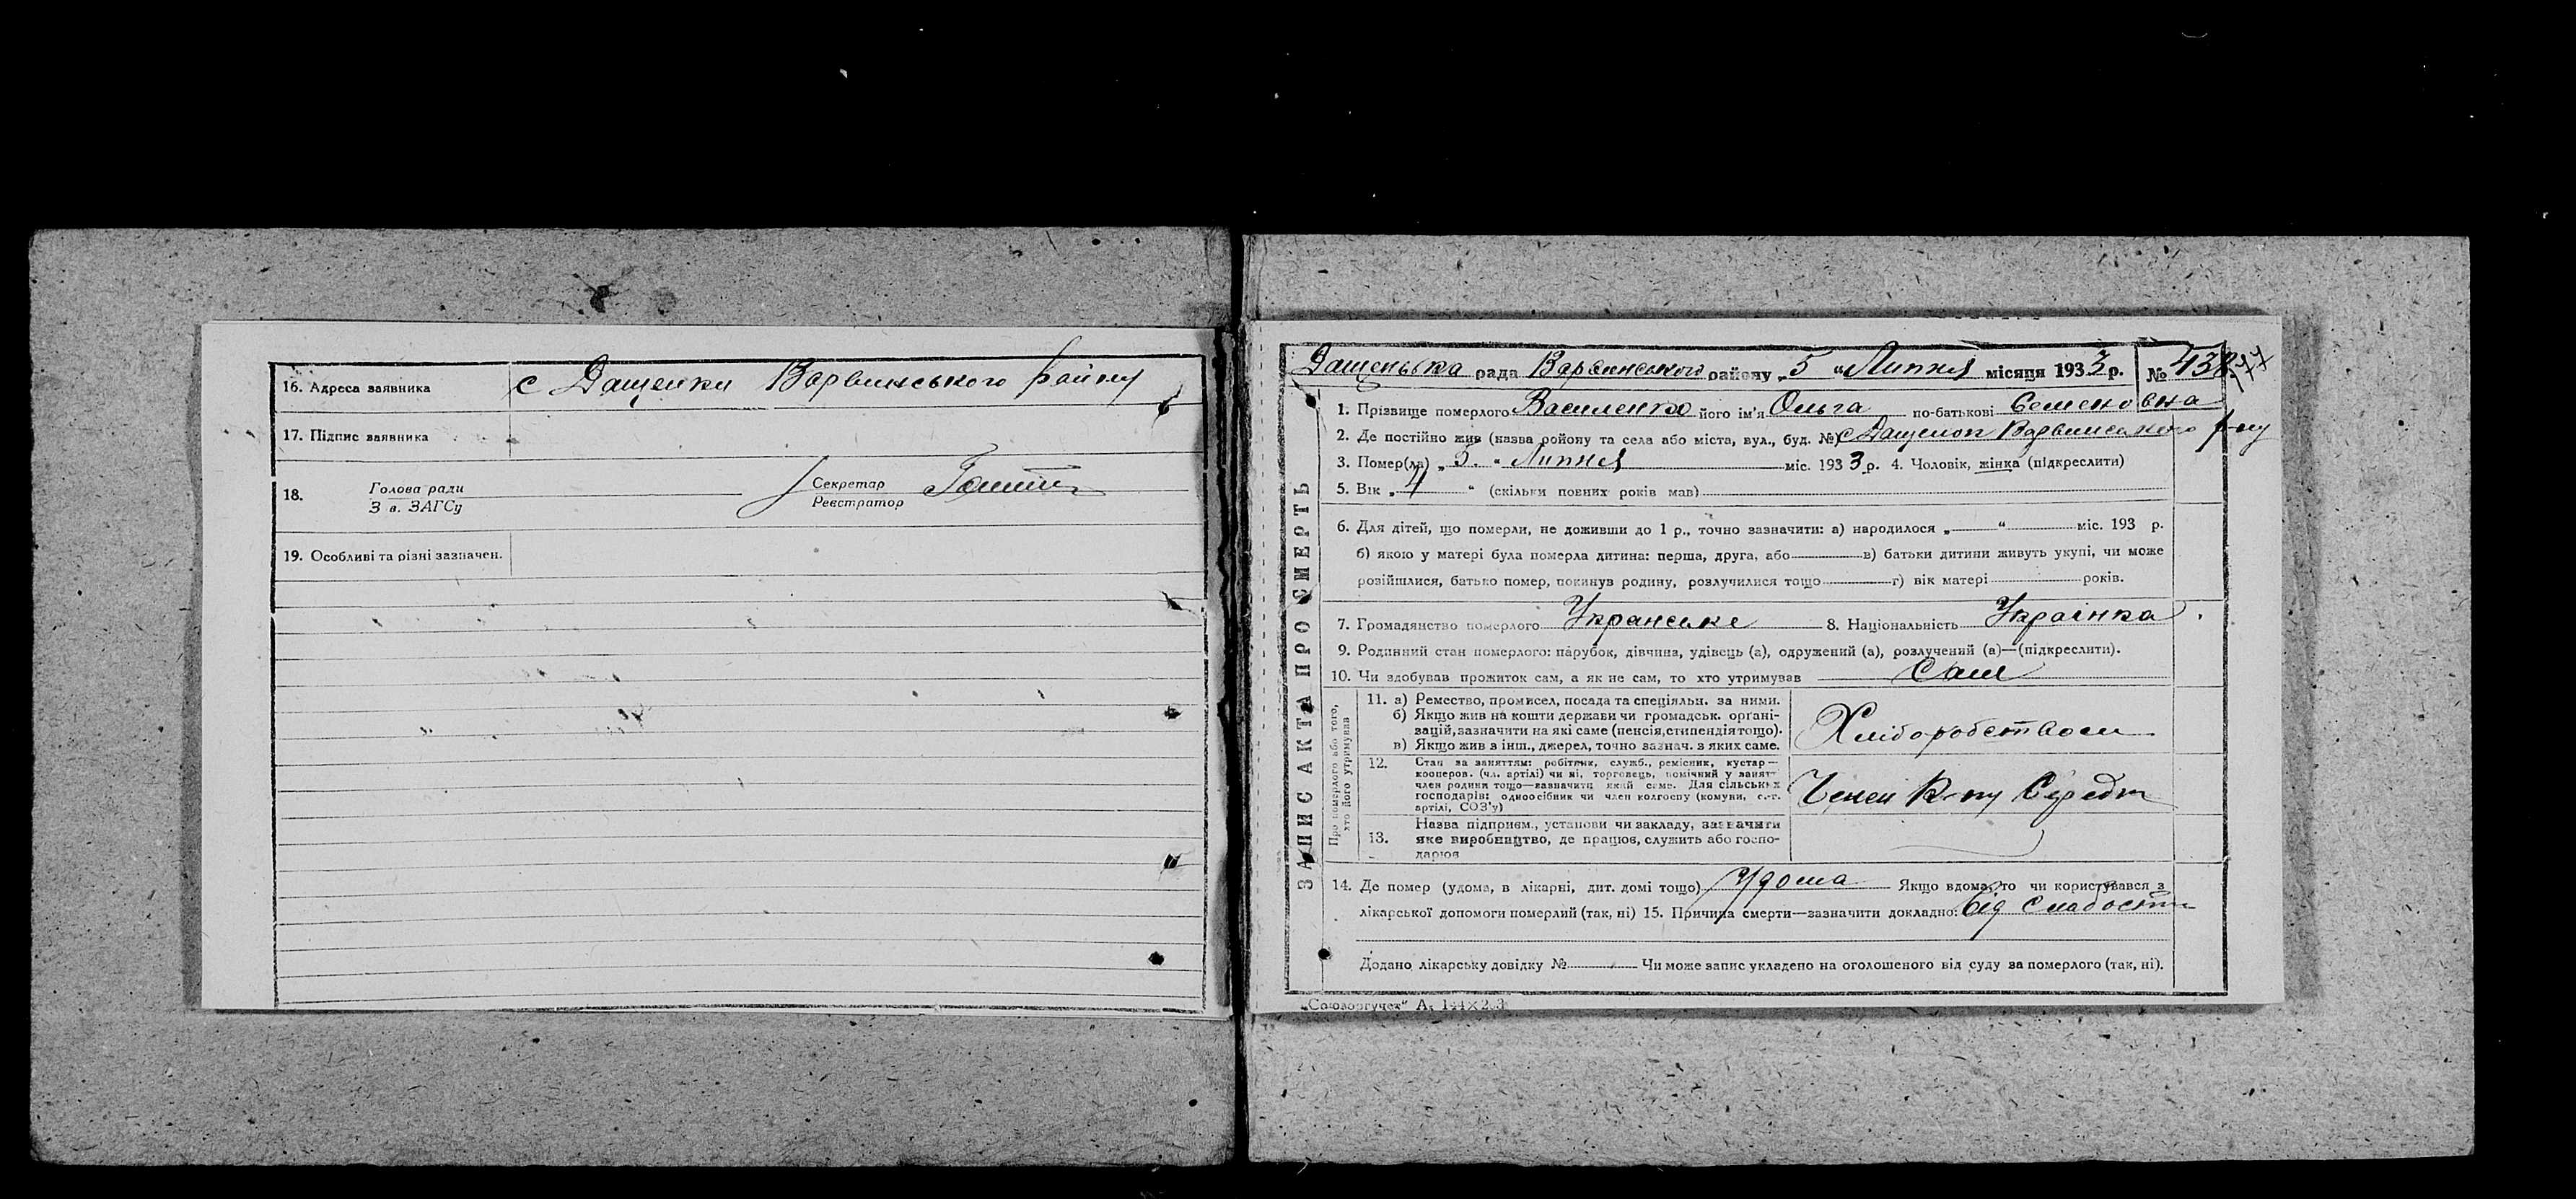 16. Адреса заявника с Дащенки Варвинського району
17. Підпис заявника
18. Голова ради Секретар
З в. ЗАГСу Реєстратор
19. Особливі та різні зазначен.
ЗАПИС АКТА ПРО СМЕРТЬ
Дащенська рада Варвинського району „5 “ Липня місяця 1933 р. № 438
177
1. Прізвище померлого Василенко його ім'я Ольга по-батькові Семеновна
2. Де постійно жив (назва району та села або міста, вул., буд. №) с Дащенок Варвинського р-ну
3. Помер(ла) „ 5. “ Липня міс. 1933 р. 4. Чоловік, жінка (підкреслити)
5. Вік „ 4 “ (скільки повних років мав)
6. Для дітей, що померли, не доживши до 1 р., точно зазначити: а) народилося „ “ міс. 193 р.
б) якою у матері була померла дитина: перша, друга, або в) батьки дитини живуть укупі, чи може
розійшлися, батько помер, покинув родину, розлучилися тощо г) вік матері років.
7. Громадянство померлого Українське 8. Національність Українка
9. Родинний стан померлого: парубок, дівчина, удівець (а), одружений (а), розлучений (а)—(підкреслити).
10. Чи здобував прожиток сам, а як не сам, то хто утримував Сам
Про померлого або того,
хто його утримував
11. а) Ремество, промисел, посада та спеціяльн. за ними.
б) Якщо жив на кошти держави чи громадськ. органі-
зацій, зазначити на які саме (пенсія, стипендія тощо).
в) Якщо жив з інш., джерел, точно зазнач. з яких саме.
Хліборобством
12. Стан за заняттям: робітник, служб., ремісник, кустар—
кооперов. (чл. артілі) чи ні, торговець, помічний у занятт
член родини тощо—зазначити який саме. Для сільських
господарів: одноосібник чи член колгоспу (комуни, с.-г.
артілі, СОЗ'у)
Член
13. Назва підприєм., установи чи закладу, зазначити
яке виробництво, де працює, служить або госпо-
дарює
14. Де помер (удома, в лікарні, дит. домі тощо) Удома Якщо вдома, то чи користувався з
лікарської допомоги померлий (так, ні) 15. Причина смерти—зазначити докладно: Від слабости
Додано лікарську довідку № Чи може запис укладено на оголошеного від суду за померлого (так, ні).
„Союзоргучет“ А₅ 144×2.3